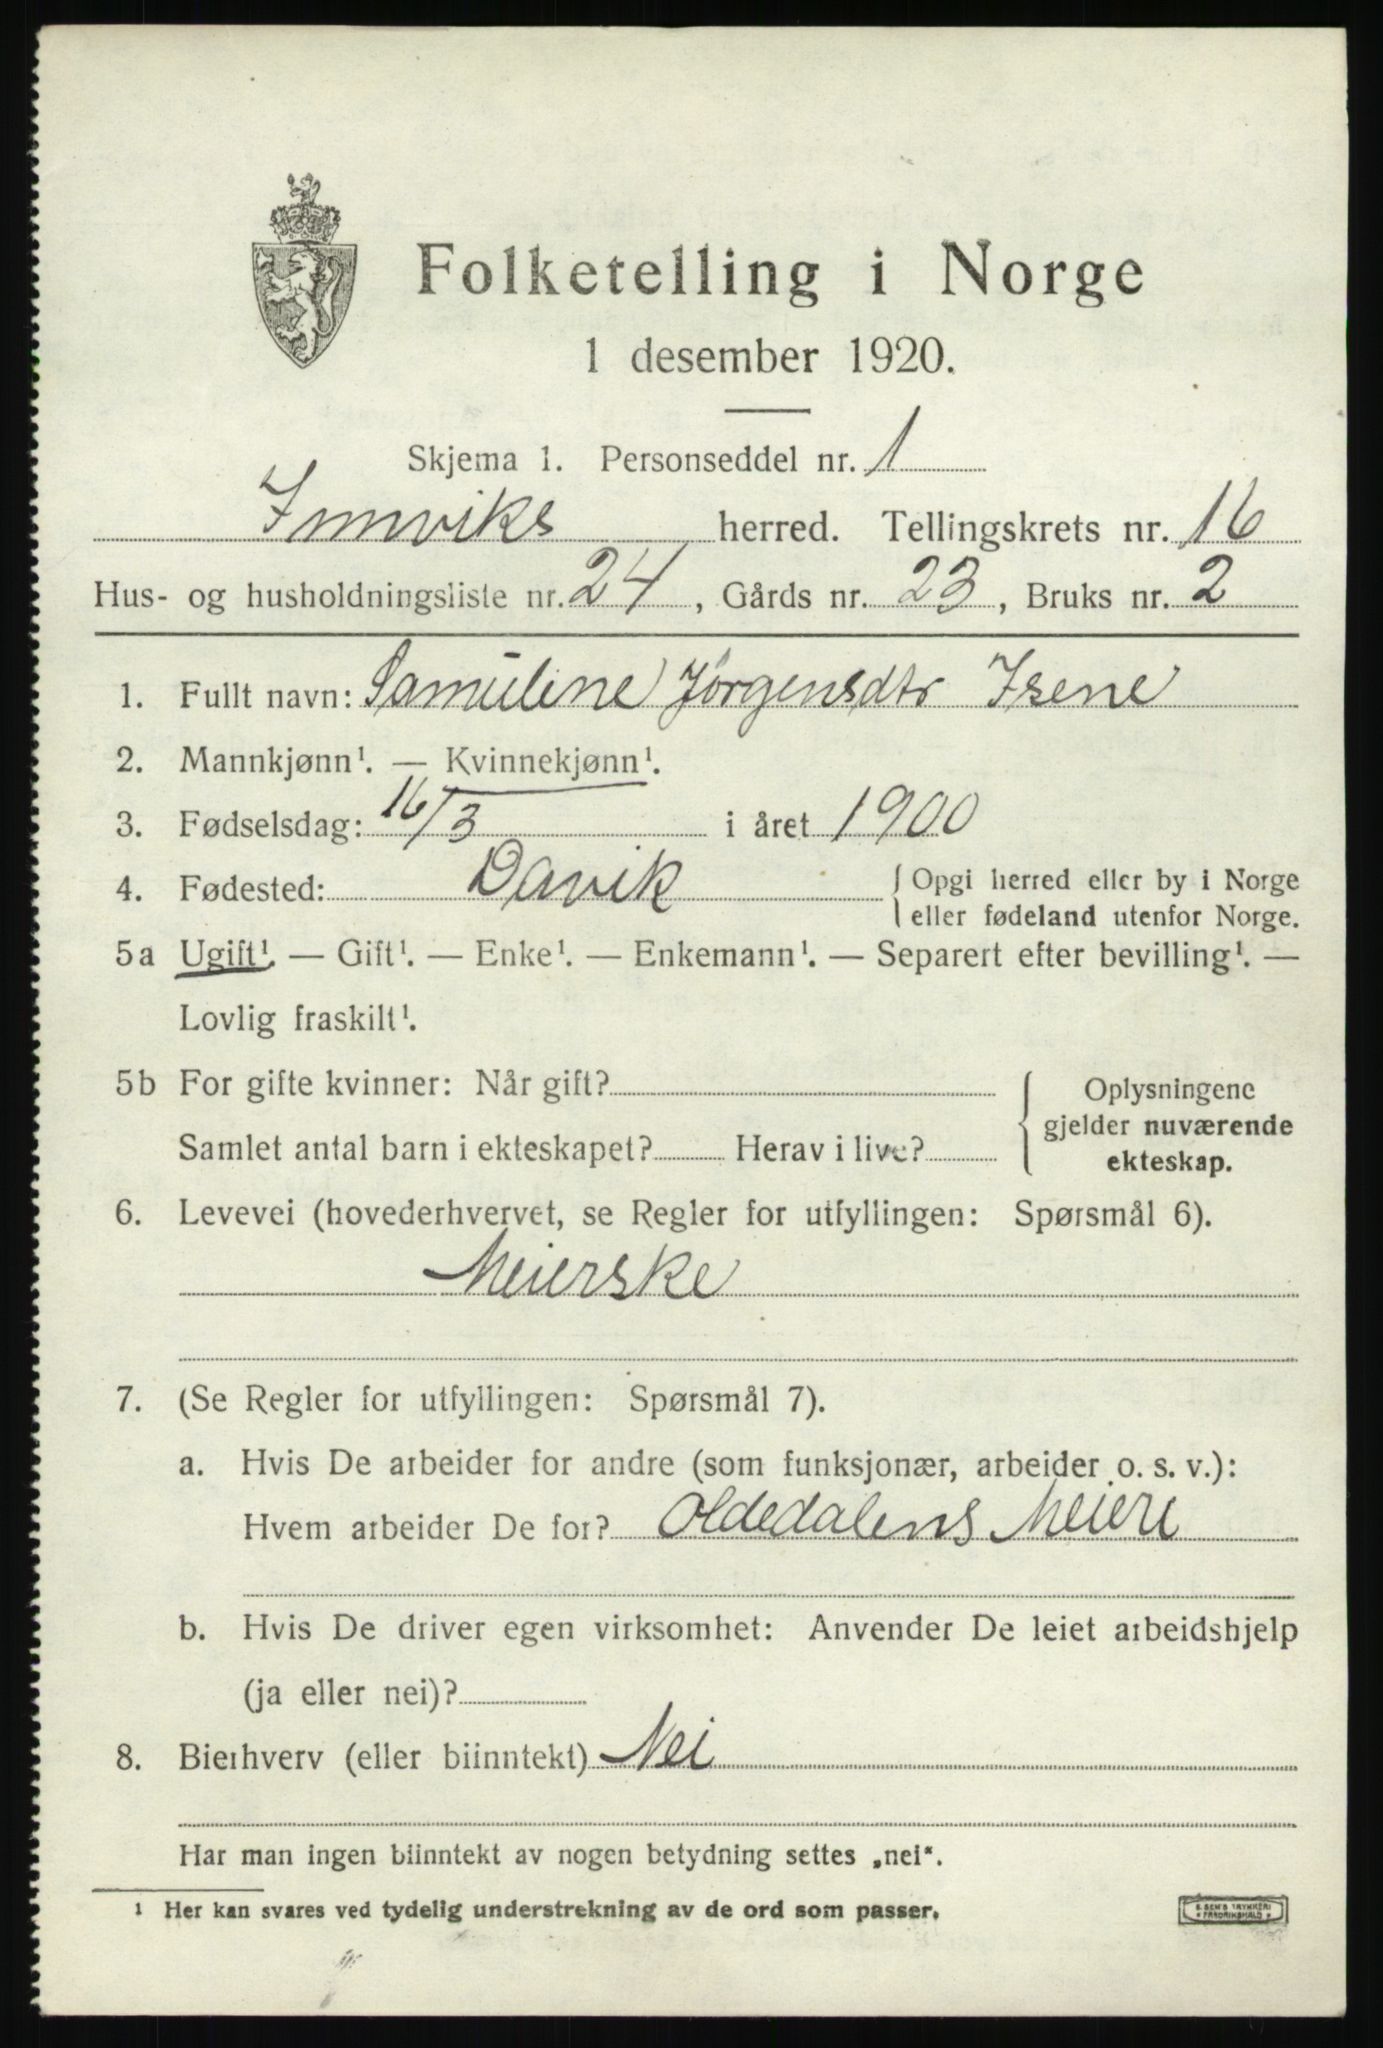 Folketelling i Norge
1 desember 1920.
Skjema 1. Personseddel nr. 1
Innviks herred. Tellingskrets nr. 16
Hus- og husholdningsliste nr. 24, Gårds nr. 23, Bruks nr. 2
1. Fullt navn: Samuline Jørgensdtr Isene
2. Mannkjønn¹. — Kvinnekjønn¹.
3. Fødselsdag: 16/3 i året 1900
4. Fødested: Davik { Opgi herred eller by i Norge
eller fødeland utenfor Norge.
5a Ugift¹. — Gift¹. — Enke¹. — Enkemann¹. — Separert efter bevilling¹. —
Lovlig fraskilt¹.
5b For gifte kvinner: Når gift? { Oplysningene
gjelder nuværende
Samlet antal barn i ekteskapet? Herav i live?
ekteskap.
6. Levevei (hovederhvervet, se Regler for utfyllingen: Spørsmål 6).
Meierske
7. (Se Regler for utfyllingen: Spørsmål 7).
a. Hvis De arbeider for andre (som funksjonær, arbeider o. s. v.):
Hvem arbeider De for? Oldedalens Meieri
b. Hvis De driver egen virksomhet: Anvender De leiet arbeidshjelp
(ja eller nei)?
8. Bierhverv (eller biinntekt) Nei
Har man ingen biinntekt av nogen betydning settes „nei“.
1 Her kan svares ved tydelig understrekning av de ord som passer.